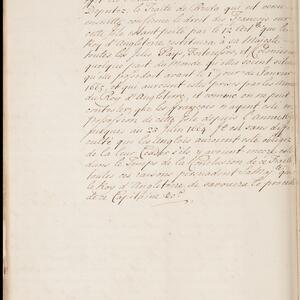 Deputez. le Traité de Breda qui est
confirme le droit des François sur
cette Isle estant porté par le 12 Art.e que le
Roy d'Angleterre restituera à sa Majesté
toutes les Isles, Pays, Forteresses et Colonies
quelque part du monde qu'elles soient situées
qu'elle possedoit avant le 1.er jour de Janvier
1665, et qui auroient esté prises par les Armes
du Roy d'Angleterre, et comme on ne peut
contester que les françois n'ayent esté en
possession de cette Isle depuis l'Année
jusques au 23 Juin 1664. Il est sans diffi-
culté que les Anglois auroient esté obligez
de la leur Ceder s'ils y avoient encore esté
dans le Temps de la Conclusion de ce Traité
toutes ces raisons persuadent que
le Roy d'Angleterre desavouera le procedé
de ce Capitaine &c.a